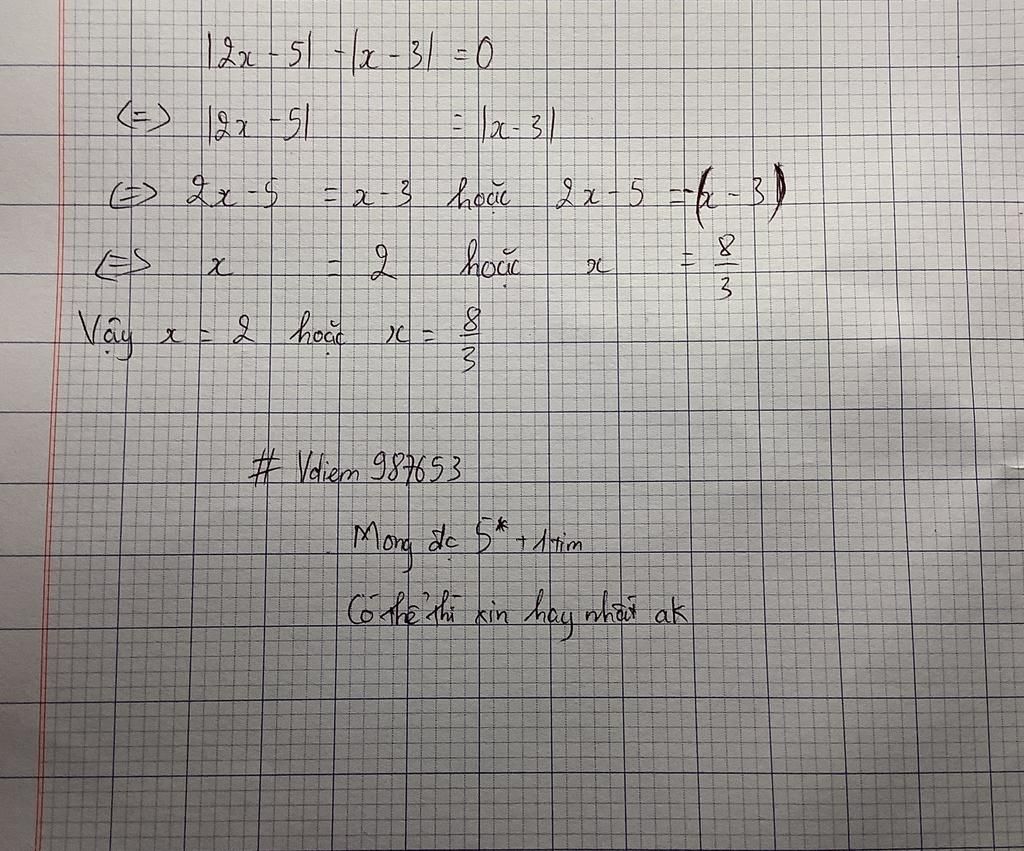 |2x - 5| - |x - 3| = 0
(=) |2x - 5| = |x - 3|
(=) 2x - 5 = x - 3 hoặc 2x - 5 = -(x - 3)
(=) x = 2 hoặc x = 8/3
Vậy x = 2 hoặc x = 8/3
# Vdiem 987653
Mong đc 5* + 1 tim
Có thể thì xin hay nhất ak